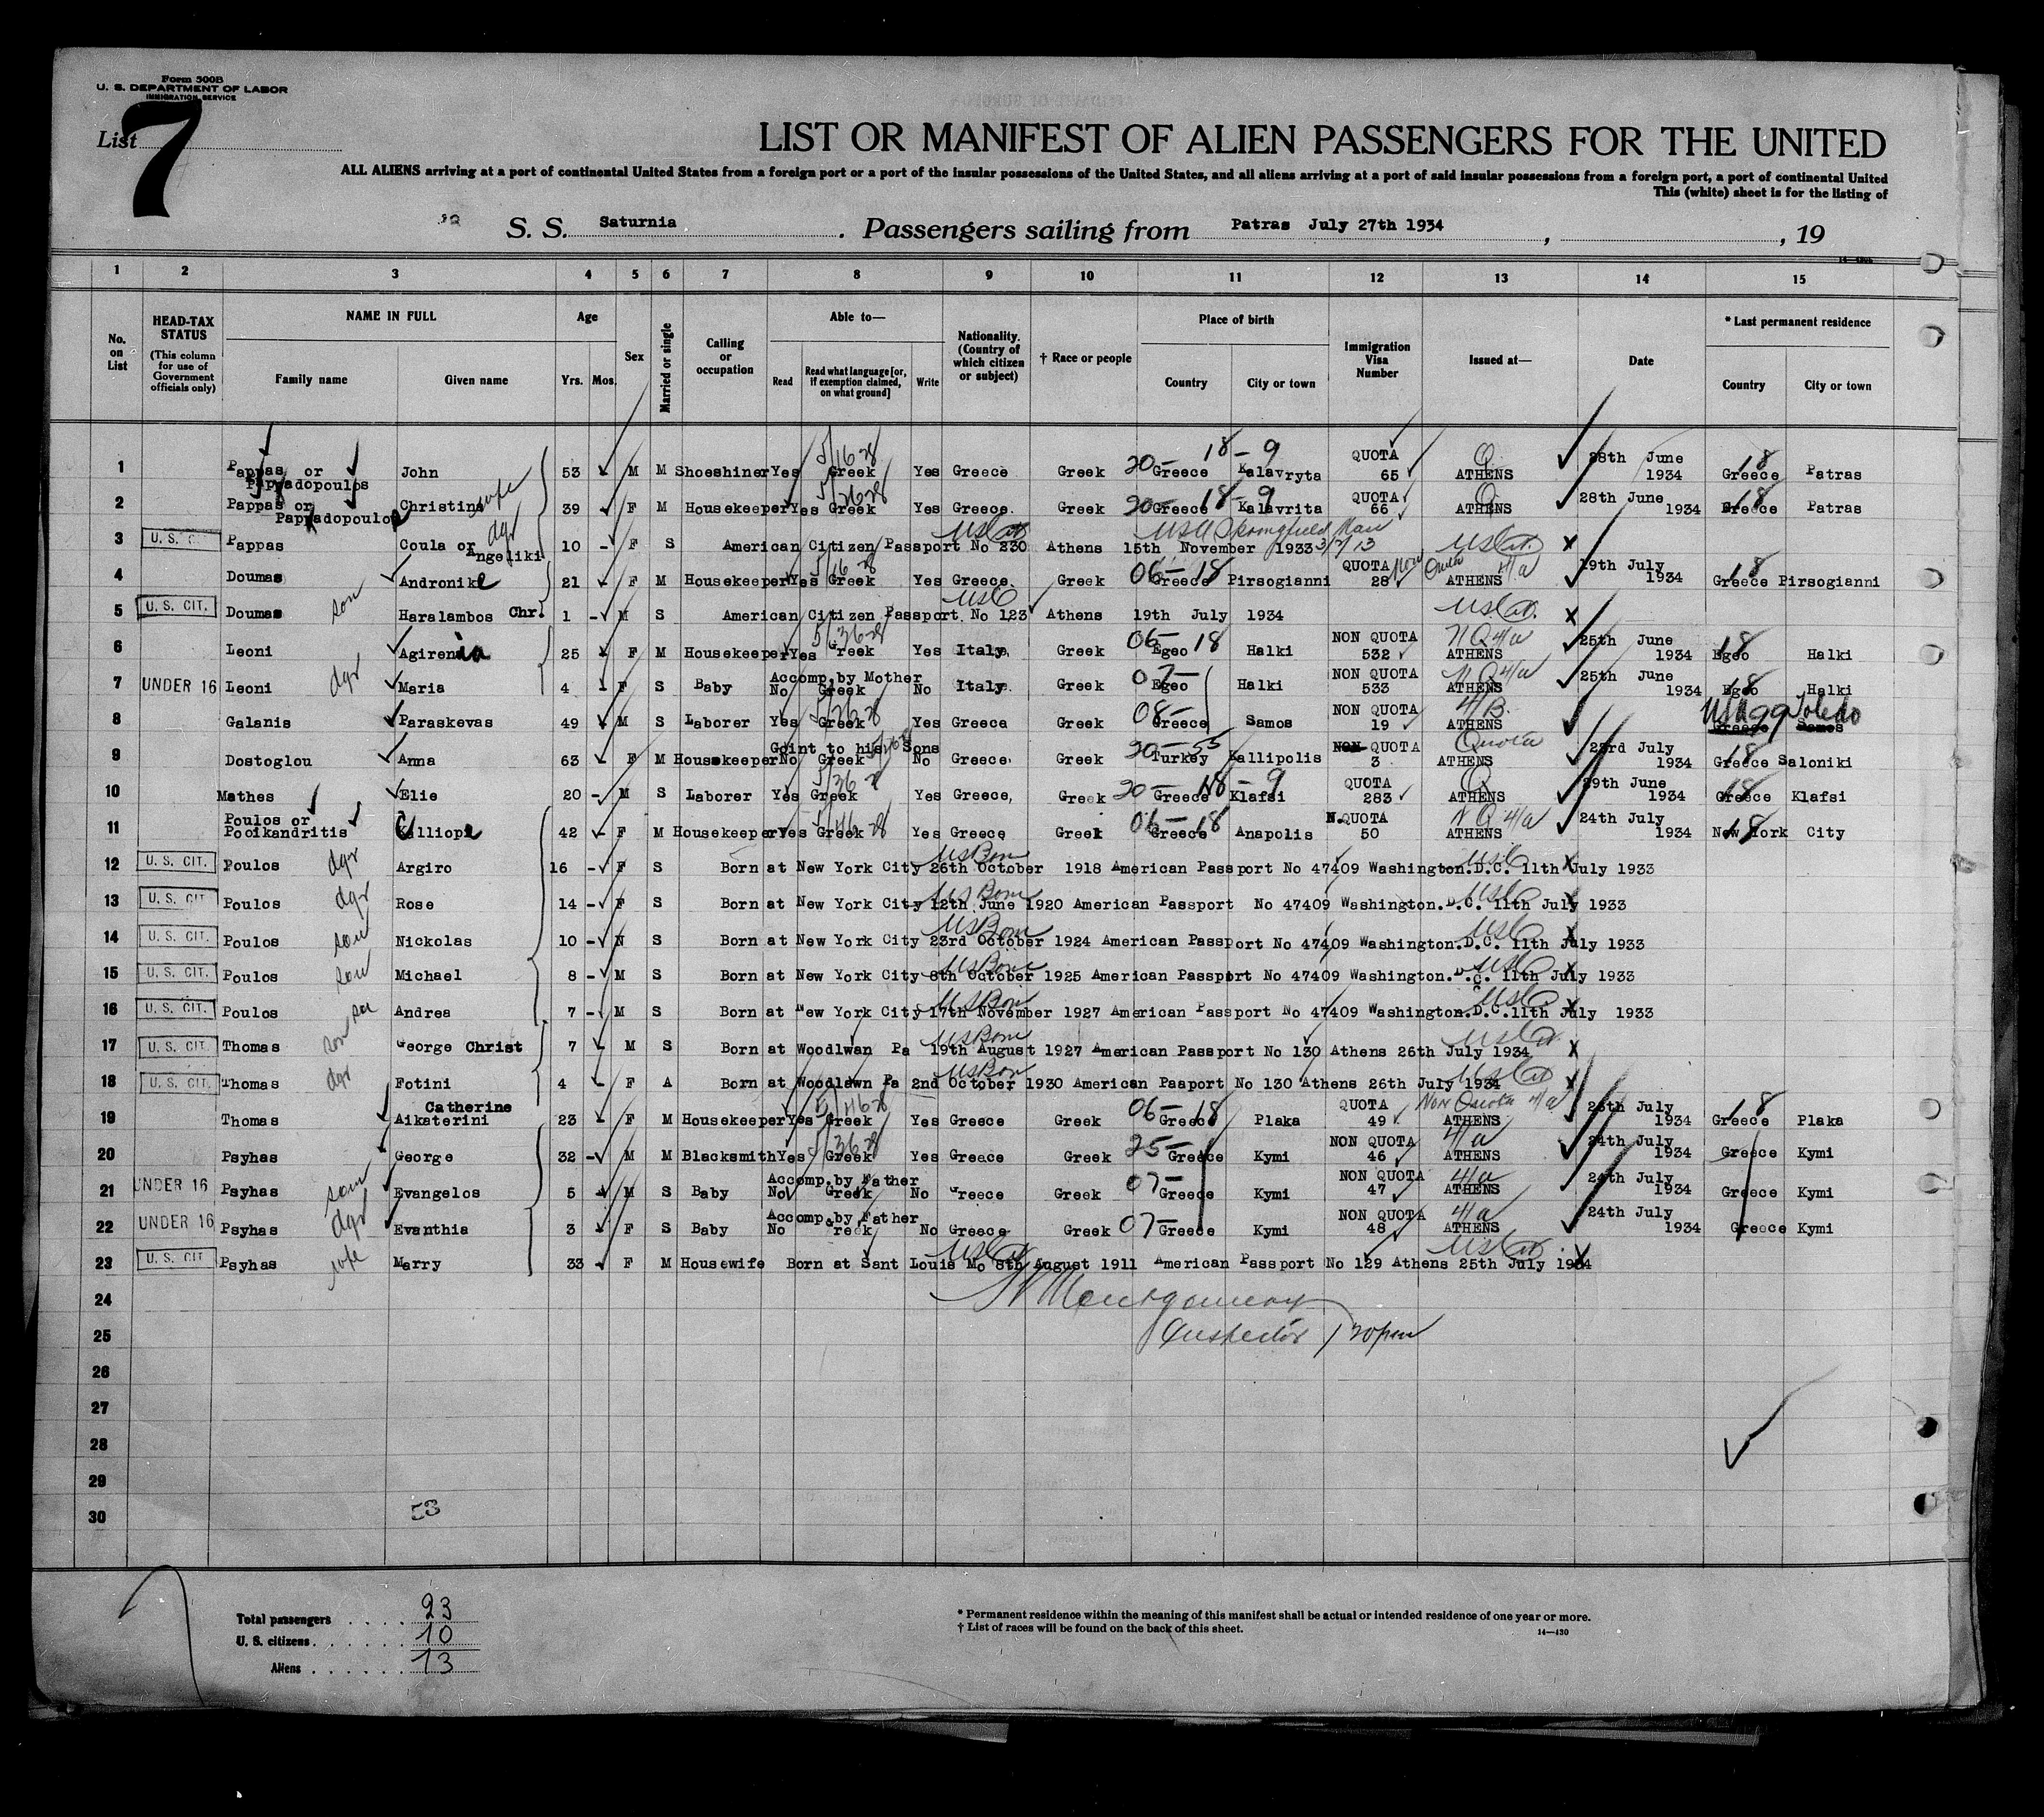 Form 500B
U. S. DEPARTMENT OF LABOR
IMMIGRATION SERVICE
List 7
LIST OR MANIFEST OF ALIEN PASSENGERS FOR THE UNITED
ALL ALIENS arriving at a port of continental United States from a foreign port or a port of the insular possessions of the United States, and all aliens arriving at a port of said insular possessions from a foreign port, a port of continental United
This (white) sheet is for the listing of
S. S. Saturnia . Passengers sailing from Patras July 27th 1934 , , 19
1 2 3 4 5 6 7 8 9 10 11 12 13 14 15
No. on List
HEAD-TAX STATUS
(This column for use of Government officials only)
NAME IN FULL
Family name Given name
Age
Yrs. Mos.
Sex
Married or single
Calling or occupation
Able to—
Read Read what language [or, if exemption claimed, on what ground] Write
Nationality. (Country of which citizen or subject)
† Race or people
Place of birth
Country City or town
Immigration Visa Number
Issued at—
Date
* Last permanent residence
Country City or town
1 Pappas or Pappadopoulos John 53 M M Shoeshiner Yes Greek 5/1628 Yes Greece Greek 20— Greece 18-9 Kalavryta QUOTA 65 Q ATHENS 28th June 1934 Greece 18 Patras
2 Pappas or Pappadopoulos Christina wife 39 F M Housekeeper Yes Greek 5/2628 Yes Greece Greek 20— Greece 18-9 Kalavrita QUOTA 66 Q ATHENS 28th June 1934 Greece 18 Patras
3 U. S. C Pappas Coula or Angeliki dgr 10 - F S American Citizen Passport No 230 Athens 15th November 1933 USA Springfield
4 Doumas Andronike 21 F M Housekeeper Yes Greek Yes Greece Greek 06— Greece 18 Pirsogianni QUOTA 28 Non Quota 4/a ATHENS 19th July 1934 Greece 18 Pirsogianni
5 U. S. CIT. Doumas son Haralambos Chr. 1 - M S American Citizen Passport No 123 Athens 19th July 1934
6 Leoni Agirenia 25 F M Housekeeper Yes Greek Yes Italy Greek 06— Egeo 18 Halki NON QUOTA 532 NQ 4/a ATHENS 25th June 1934 Egeo 18 Halki
7 UNDER 16 Leoni dgr Maria 4 - F S Baby Accomp.by Mother No Greek No Italy Greek 07— Egeo Halki NON QUOTA 533 NQ 4/a ATHENS 25th June 1934 Egeo 18 Halki
8 Galanis Paraskevas 49 M S Laborer Yes Greek Yes Greece Greek 08— Greece Samos NON QUOTA 19 4/B. ATHENS USA 99 Toledo Greece Samos
9 Dostoglou Anna 63 F M Housekeeper Goint to his Sons No Greek No Greece Greek 20—55 Turkey Kallipolis NON QUOTA 3 Quota ATHENS 23rd July 1934 Greece 18 Saloniki
10 Mathes Elie 20 - M S Laborer Yes Greek Yes Greece Greek 20— Greece 18-9 Klafsi QUOTA 283 Q ATHENS 29th June 1934 Greece 18 Klafsi
11 Poulos or Pooikandritis Calliope 42 - F M Housekeeper Yes Greek Yes Greece Greek 06— Greece 18 Anapolis N.QUOTA 50 NQ 4/a ATHENS 24th July 1934 New York 18 City
12 U. S. CIT. Poulos dgr Argiro 16 - F S Born at New York City 26th October 1918 American Passport No 47409 Washington.D.C. 11th July 1933 US Born
13 U. S. CIT Poulos dgr Rose 14 - F S Born at New York City 12th June 1920 American Passport No 47409 Washington.D.C. 11th July 1933 US Born
14 U. S. CIT. Poulos son Nickolas 10 - N S Born at New York City 23rd October 1924 American Passport No 47409 Washington.D.C. 11th July 1933 US Born
15 U. S. CIT. Poulos son Michael 8 - M S Born at New York City 8th October 1925 American Passport No 47409 Washington.D.C. 11th July 1933 US Born
16 U. S. CIT. Poulos son Andrea 7 - M S Born at New York City 17th November 1927 American Passport No 47409 Washington.D.C.11th July 1933 US Born
17 U. S. CIT. Thomas son George Christ 7 - M S Born at Woodlwan Pa 19th August 1927 American Passport No 130 Athens 26th July 1934 US Born
18 U. S. CIT. Thomas dgr Fotini 4 - F A Born at Woodlawn Pa 2nd October 1930 American Paaport No 130 Athens 26th July 1934 US Born
19 Thomas Catherine Aikaterini 23 F M Housekeeper Yes Greek Yes Greece Greek 06— Greece 18 Plaka QUOTA 49 Non Quota 4/a ATHENS 25th July 1934 Greece 18 Plaka
20 Psyhas George 32 - M M Blacksmith Yes Greek Yes Greece Greek 25— Greece Kymi NON QUOTA 46 4/a ATHENS 24th July 1934 Greece Kymi
21 UNDER 16 Psyhas son Evangelos 5 M S Baby Accomp.by Father No Greek No Greece Greek 07— Greece Kymi NON QUOTA 47 4/a ATHENS 24th July 1934 Greece Kymi
22 UNDER 16 Psyhas dgr Evanthia 3 F S Baby Accomp.by Father No Greek No Greece Greek 07— Greece Kymi NON QUOTA 48 4/a ATHENS 24th July 1934 Greece Kymi
23 U. S. CIT Psyhas wife Marry 33 F M Housewife Born at Sant Louis Mo 8th August 1911 American Passport No 129 Athens 25th July 1934
24 Montgomery
25 Inspector
26
27
28
29
30
53
Total passengers . . . . . 23
U. S. citizens . . . . . . 10
Aliens . . . . . . 13
* Permanent residence within the meaning of this manifest shall be actual or intended residence of one year or more.
† List of races will be found on the back of this sheet.
14—430